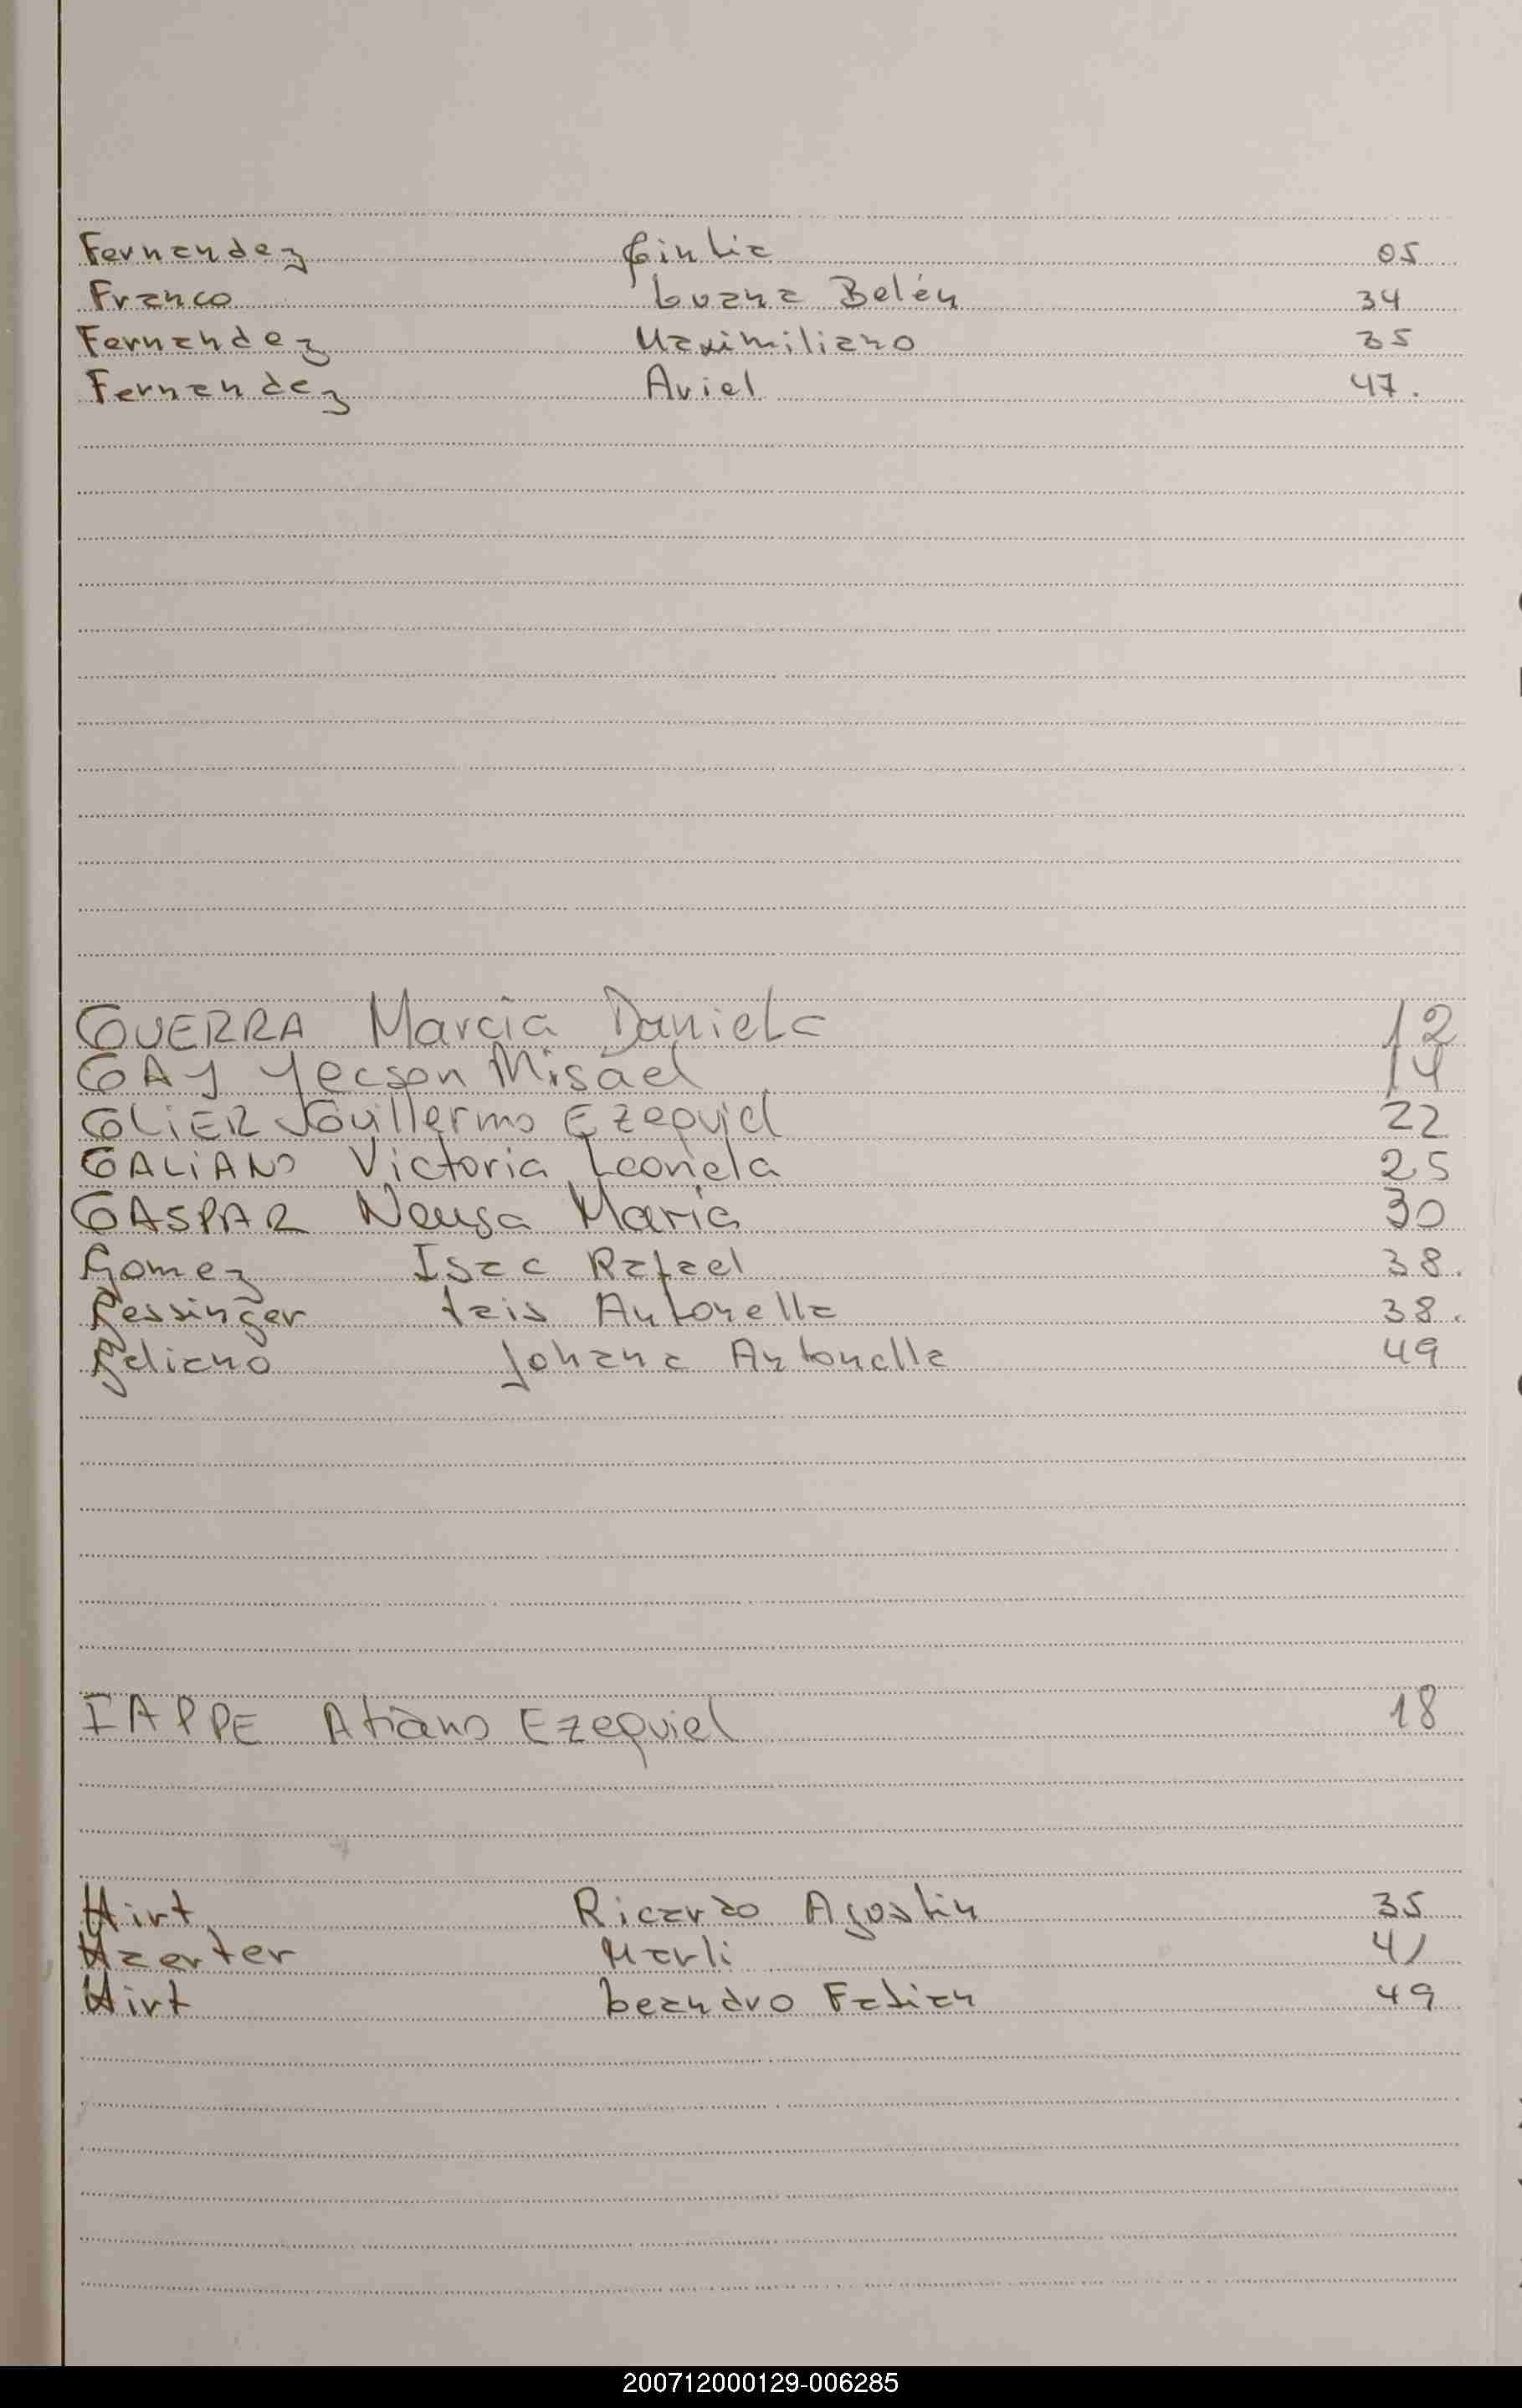 Fernandez Giulia 05
Franco Luana Belén 34
Fernandez Maximiliano 35
Fernandez Ariel 47.
GUERRA Marcia Daniela 12
GAY Yecson Misael 14
GLIER Guillermo Ezequiel 22
GALiANO Victoria Leonela 25
GASPAR Neusa Maria 30
Gomez Isac Rafael 38.
Gessinger Antonella 38.
Galiano Johana Antonella 49
IAPPE Ezequiel 18
Hirt Ricardo Agostin 35
Marli 41
Hirt Leandro Fabian 49
200712000129-006285